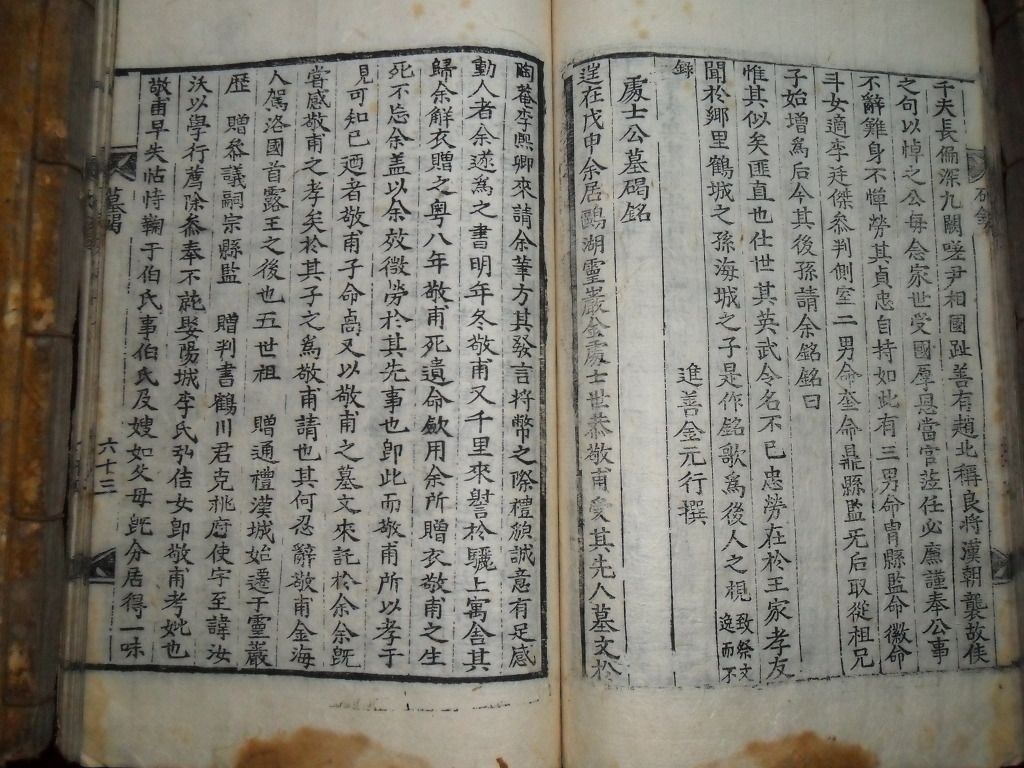 千夫長偏深九闕嗟尹相國趾善有趙北稱良將漢朝襲故使
之句以悼之公每念家世受國厚恩當官莅任必廉謹奉公事
不辭難身不憚勞其貞忠自持如此有三男命胄縣監命徽命
斗女適李廷傑參判側室二男命奎命鼎縣監死后取從祖兄
子始增爲后今其後孫請余銘銘曰
惟其似矣匪直也仕世其英武令名不已忠勞在於王家孝友
聞於鄉里鶴城之孫海城之子是作銘歌爲後人之視 致祭文
逸而不
錄
進善金元行撰
處士公墓碣銘
逞在戊申余居鷗湖靈巖金處士世恭敬甫受其先人墓文於
陶菴李熙卿來請余筆方其發言將幣之際禮貌誠意有足感
動人者余遂爲之書明年冬敬甫又千里來謝於驪上寓舍其
歸余解衣贈之粤八年敬甫死遺命斂用余所贈衣敬甫之生
死不忘余盖以余效微勞於其先事也卽此而敬甫所以孝于
見可知已廼者敬甫子命卨又以敬甫之墓文來託於余余旣
嘗感敬甫之孝矣於其子之爲敬甫請也其何忍辭敬甫金海
人駕洛國首露王之後也五世祖 贈通禮漢城始遷于靈巖
歷 贈參議嗣宗縣監 贈判書鶴川君克祧府使字至諱汝
沃以學行薦除參奉不就娶陽城李氏弘佶女卽敬甫考妣也
敬甫早失怙恃鞠于伯氏事伯氏及嫂如父母旣分居得一味
墓碣
六十三